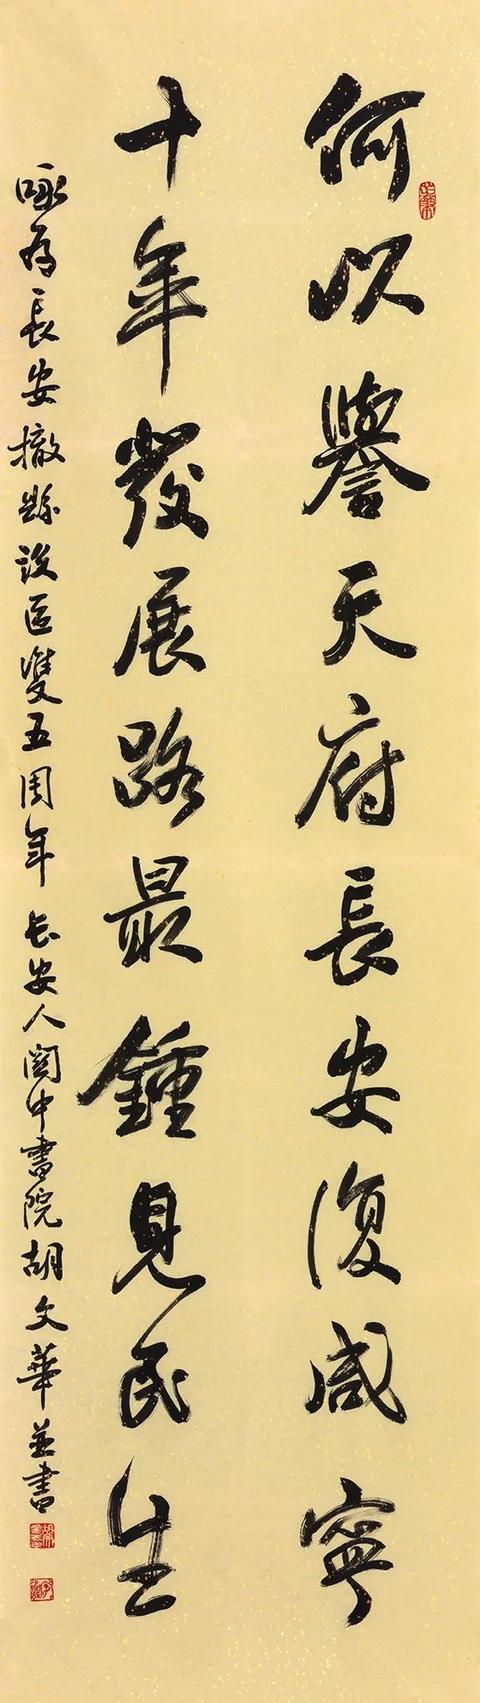 何以譽天府長安復咸寧
十年發展路最鍾見民生
咏為長安撤縣設區雙五周年 長安人關中書院胡文華並書